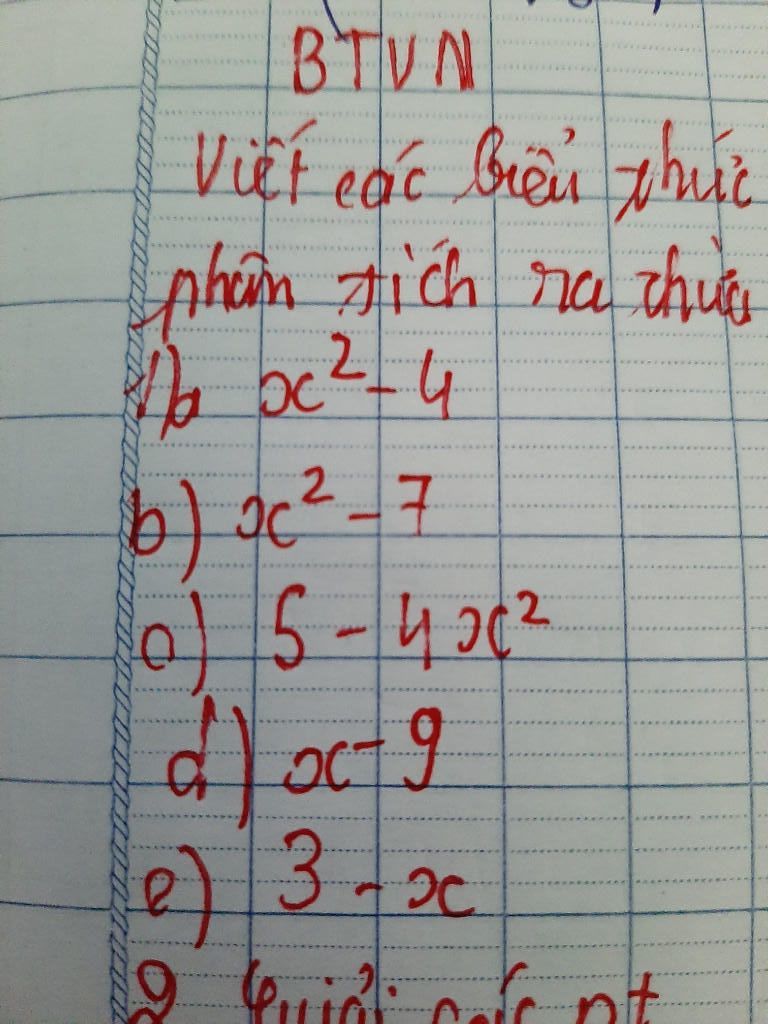 BTVN
Viết các biểu thức
phân tích ra thừa
1/a x² - 4
b) x² - 7
c) 5 - 4x²
d) x - 9
e) 3 - x
2 Giải các pt